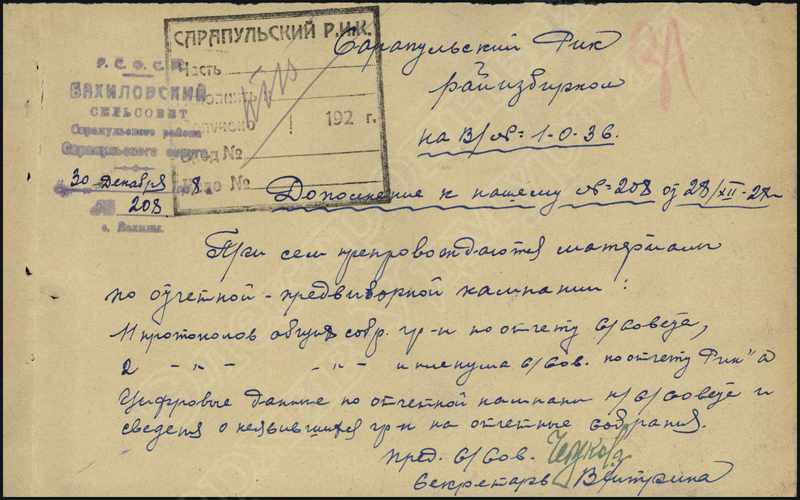 САРАПУЛЬСКИЙ Р.И.К.
Часть
192 г.
№
Дело №
Р. С. Ф. С. Р.
СЕЛЬСОВЕТ
Сарапульского района
Сарапульского округа
30 Декабря 8
№ 208
Сарапульский Рик
райизбирком
на В/№ 1-0.36.
Дополнение к нашему № 208 от 28/XII-28г
При сем препровождаются материалы
по отчетной-предвиборной кампании:
11 протоколов общих собр. гр-н по отчету С/Совета,
2 -"- -"- и пленума С/Сов. по отчету Рик"а
Цифровые данные по отчетной кампани н/С/Совета и
сведения о неявившихся гр-н на отчетные собрания.
пред. С/Сов.
Секретарь